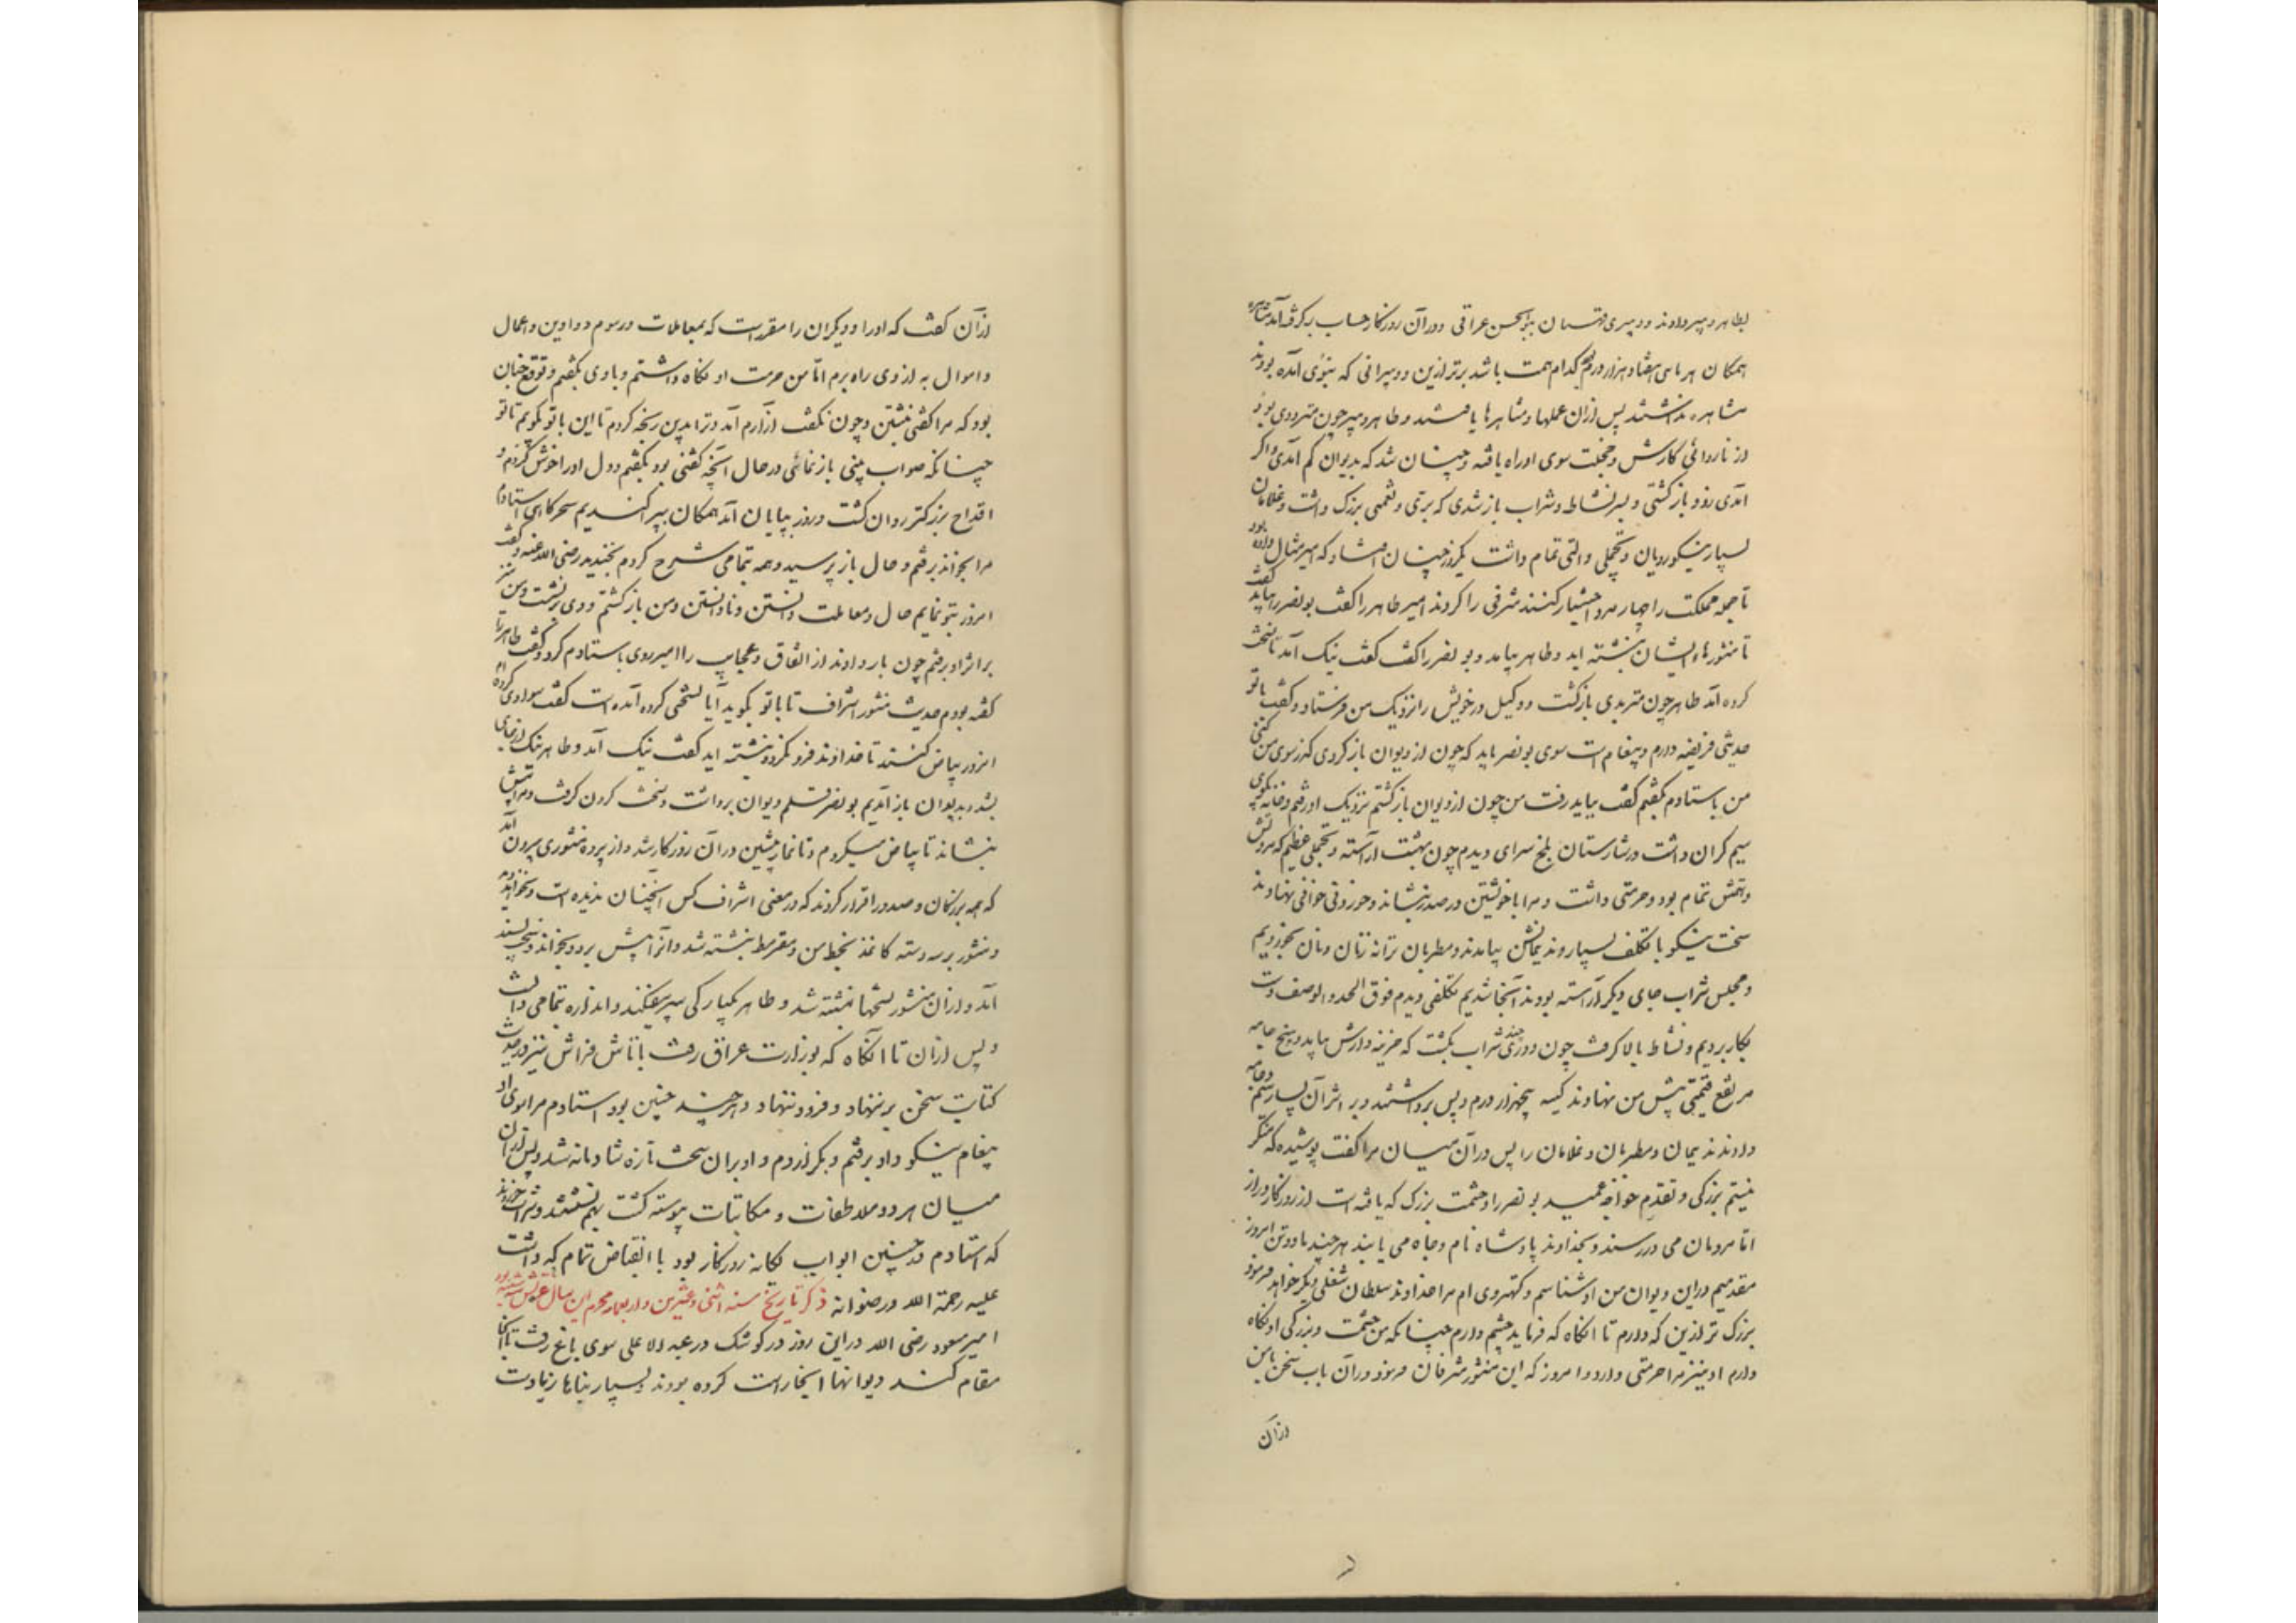 بطاهر دبیر دادند و دبیری قهستان ببوالحسن عراقی و در آن روزگار حساب برگرفته آمد مشاهره
همگان هر ماهی هفتاد هزار درم کدام همت باشد برتر ازین و دبیرانی که بنوی آمده بودند
مشاهره نداشتند پس از آن عملها و مشاهرها یافتند و طاهر دبیر چون متردّدی بود
از ناروائی کارش و خجلت سوی او راه یافته و چنان شد که بدیوان کم آمدی و اگر
آمدی زود بازگشتی و بسر نشاط و شراب باز شدی که برگی و نعمتی بزرگ داشت و غلامان
بسیار نیکو رویان و تجملی و آلتی تمام داشت یکروز چنان افتاد که امیر مثال داده بود
تا جمله مملکت را چهار مرد اختیار کنند مشرفی را کردند امیر طاهر را گفت بونصر را بباید گفت
تا منشورهاء ایشان نبشته آید و طاهر بیامد و بونصر را گفت گفت نیک آمد تا نسخت
کرده آید طاهر چون متربدی بازگشت و وکیل در خویش را نزدیک من فرستاد و گفت با تو
حدیثی فریضه دارم و پیغام است سوی بونصر باید که چون از دیوان بازگردی گذر سوی من کنی
من باستادم بگفتم گفت بباید رفت من چون از دیوان بازگشتم نزدیک او رفتم و خانه بکوی
سیم گران داشت در شارستان بلخ سرای دیدم چون بهشت آراسته و تجملی عظیم که مروتش
و همتش تمام بود و حرمتی داشت و مرا با خویشتن در صدر بنشاند و خوردنی خوافی نهادند
سخت نیکو با تکلف بسیار و ندیمانش بیامدند و مطربان ترانه زنان و نان بخوردیم
و مجلس شراب جای دیگر آراسته بودند آنجا شدیم تکلفی دیدم فوق الحد و الوصف دست
بکار بردیم و نشاط بالا گرفت چون دوری چند شراب بگشت که خزینه دارش بیامد و پنج جامه
مرتفع قیمتی پیش من نهادند کیسه پنجهزار درم و پس برداشتند و بر اثر آن بسیار سیم و جامه
دادند ندیمان و مطربان و غلامان را پس در آن میان مرا گفت پوشیده که منکر
نیستم بزرگی و تقدم خواجه عمید بونصر را و حشمت بزرگ که یافته است از روزگار دراز
اما مردمان می در رسند و بخداوند پادشاه نام و جاه می یابند هر چند ما دو تن امروز
مقدمیم دراین دیوان من او شناسم و کهتر وی ام مرا خداوند سلطان شغلی دیگر خواهد فرمود
بزرگ تر ازین که دارم تا آنگاه که فرماید چشم دارم چنانکه من حشمت و بزرگی او نگاه
دارم او نیز مرا حرمتی دارد و امروز که این منشور مشرفان فرمود در آن باب سخن با من
از آن
از آن گفت که او را و دیگران را مقرر است که بمعاملات و رسوم دواوین و اعمال
و اموال به از وی راه برم اما من حرمت او نگاه داشتم و با وی بگفتم و توقع چنان
بود که مرا گفتی نبشتن و چون نگفت آزارم آمد و ترا بدین رنجه کردم تا این با تو بگویم تا تو
چنانکه صواب بینی باز نمائی در حال آنچه گفتنی بود بگفتم و دل او را خوش کردم و
اقداح بزرگتر روان گشت و روز بپایان آمد همگان بپراکندیم سحرگاهی استادم
مرا بخواند برفتم و حال باز پرسید و همه بتمامی شرح کردم بخندید رضی الله عنه و گفت
امروز بتو نمایم حال و معاملت دانستن و نادانستن و من بازگشتم و وی برنشست و من نیز
بر اثر او برفتم چون بار دادند از اتفاق و عجایب را امیر روی باستادم کرد و گفت طاهر را
گفته بودم حدیث منشور اشراف تا با تو بگوید آیا نسختی کرده آمده است گفت سوادی کرده ام
امروز بیاض کنند تا خداوند فرو نگرد و نبشته آید گفت نیک آمد و طاهر نیک از جای
بشد و بدیوان باز آمدیم بونصر قلم دیوان برداشت و نسخت کردن گرفت و مرا پیش
بنشاند تا بیاض میکردم و تا نماز پیشین در آن روزگار شد و از پرده منشوری بیرون آمد
که همه بزرگان و صدور اقرار کردند که در معنی اشراف کس آنچنان ندیده است و نخواهد دید
و منشور بر سه دسته کاغذ بخط من و مقرمط نبشته شد و آنرا پیش برد و بخواند و سخت پسند
آمد و از آن منشور نسختها نبشته شد و طاهر یکبارگی سپر بیفکند و اندازه بتمامی دانست
و پس از آن تا آنگاه که بوزارت عراق رفت با تاش فراش نیز در حدیث
کتابت سخن بر ننهاد و فرود ننهاد و هر چند چنین بود استادم مرا سوی او
پیغام نیکو داد برفتم و بگزاردم و او بران سخت تازه شادمانه شد و پس از آن
میان هر دو ملاطفات و مکاتبات پیوسته گشت بهم نشستند و شراب خوردند
که استادم در چنین ابواب یگانه روزگار بود با انقباض تمام که داشت
علیه رحمة الله و رضوانه ذکر تاریخ سنه اثنی و عشرین و اربعمایه محرم این سال
امیر مسعود رضی الله دراین روز در کوشک در عبد الاعلی سوی باغ رفت تا آنجا
مقام کند دیوانها آنجا راست کرده بودند و بسیار بناها زیادت